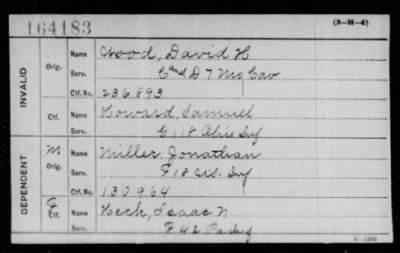 164183
(3-H-4)
INVALID
Orig.
Name Wood, David H
Serv. C and D 7 Mo Cav
Ctf. No. 236893
Ctf.
Name Howard, Samuel
Serv. G 118 Ohio Inf
DEPENDENT
M. Orig.
Name Miller, Jonathan
Serv. F 18 Inf
Ctf. No. 130964
F Ctf.
Name Heck, Isaac N
Serv. F 42 Pa Inf